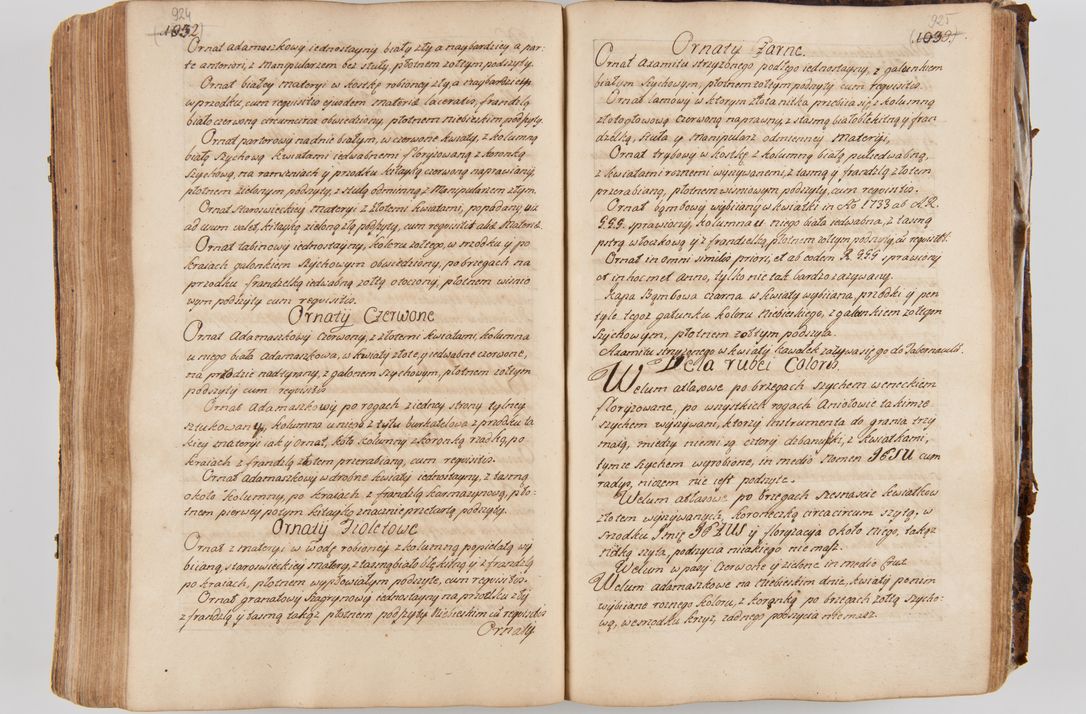 924
(1032)
Ornat adamaszkowy iednostayny biały zły a naybardziey a par-
te anteriori, z Manipularzem bez stuły, płotnem zołtym podszyty.
Ornat białey materyi w kostkę robioney zły, a naybardziey
w przodku, cum requisitis ejusdem materiæ laceratis, frandzlą
biało czerwoną circumcirca obwiedziony, płotnem niebieskim podszyty.
Ornat porterowy na dnie białym, w czerwone kwiaty, z kolumną
białą szychową kwiatami iedwabnem florysowaną z koronką
szychową, na ramieniach y przodku kitayką czerwoną naprawiany,
płotnem zielonym podszyty, z stułą odmienną z Manipularzem złym.
Ornat Starowieckiey materyi z złotemi kwiatami, popodany, uti
ad uum valet, kitayką zieloną złą podszyty, cum requisitis
Ornat tabinowy iednostayny, koloru zołtego, w srodku y po
kraiach galonkiem szychowym obwiedziony, po brzegach na
przodku frandzelką iedwabną zołtą otoczony, płotnem wisnio
wym podszyty cum requisitis.
Ornaty Czerwone
Ornat Adamaszkowy Czerwony, z złotemi kwiatami, kolumna
u niego biała Adamaszkowa, w kwiaty złote, y iedwabne czerwone,
na przodzie nadtyrany, z galonem szychowym, płotnem zołtym
podszyty cum requisitis
Ornat Adamaszkowy, po rogach z iedney strony tylney
sztukowany, kolumna u niego z tyłu burkatelowa z przodku ta
kiey materyi iak y ornat, koło kolumny z koronką rzadką, po
kraiach z frandzlą złotem przerabianą, cum requisitis.
Ornat Adamaszkowy w drobne kwiaty iednostayny, z tasmą
około kolumny, po kraiach z frandzlą karmazynową, pło-
tnem pierwey potym kitayką znacznie przetartą podszyty.
Ornaty Fioletowe
Ornat z materyi w wodę robioney z kolumną popielatą wy
biianą, starowieckiey matery, z tasmą biało błękitną y z frandzlą
po kraiach, płotnem wypłowiałym podszyte, cum requisitis.
Ornat granatowy szagrynowy iednostayny na przodku zły
z frandzlą, y tasmą takąż płotnem podszyty Niebieskim cum requisitis
Ornaty
925
(1033)
Ornaty Czarne.
Ornat Axamitu strzyżonego podłego iednostayny, z galonkiem
białym szychowym, płotnem zołtym podszyty cum requisitis.
Ornat lamowy w ktorym złota nitka przebiia się z kolumną
złotogłowową czerwoną naprawny, z tasmą białobłękitną y fran
dzelką, stuła y manipularz odmienney materyi,
Ornat trybowy w kostkę z kolumną białą pułiedwabną,
z kwiatami roznemi wyszywanemi, z tasmą y frandzlą złotem
przerabianą, płotnem wisniowym podszyty, cum requisitis.
Ornat bombowy wybiiany w kwiatki in Aō 1733 ab A.R.
sprawiony, kolumna u niego biała iedwabna, z tasmą
pstrą włoczkową y z frandzelką, płotnem zołtym podszyty, cū requisitis.
Ornat in omni similis priori, et ab eodem sprawiony
et in hoc met Anno, tylko nie tak bardzo zazywany.
Kapa Bombowa czarna w kwiaty wybiiana, przodki y pen
tyle tegoz gatunku koloru Niebieskiego, z galonkiem zołtym
szychowym, płotnem zołtym podszyta.
Axamitu strzyżonego w kwiaty kawałek zazywa się go do Tabernaculū.
Vela rubei Coloris.
Welum atlasowe po brzegach szychem weneckiem
floryzowane, po wszystkich rogach Aniołowie takimze
szychem wyszywani, ktorzy instrumenta do grania trzy
maią, między niemi są cztery dzbanuszki, z kwiatkami,
tymze szychem wyrobione, in medio Nomen JESU cum
radys, niczem nie iest podszyte.
Welum atlasowe po brzegach szesnascie kwiatkow
złotem wyszywanych, koroneczką circacircum szytą, w
srodku Imię JEZUS y floryzacya około niego, takąż
nitką szyta, podszycia miałkiego nie masz.
Welum w pasy czerwone y zielone in medio Crux
Welum adamaszkowe na Niebieskim dnie, kwiaty po nim
wybiiane roznego koloru, z koronką po brzegach zołtą szycho-
wą, we srodku krzyż, zadnego podszycia nie masz.